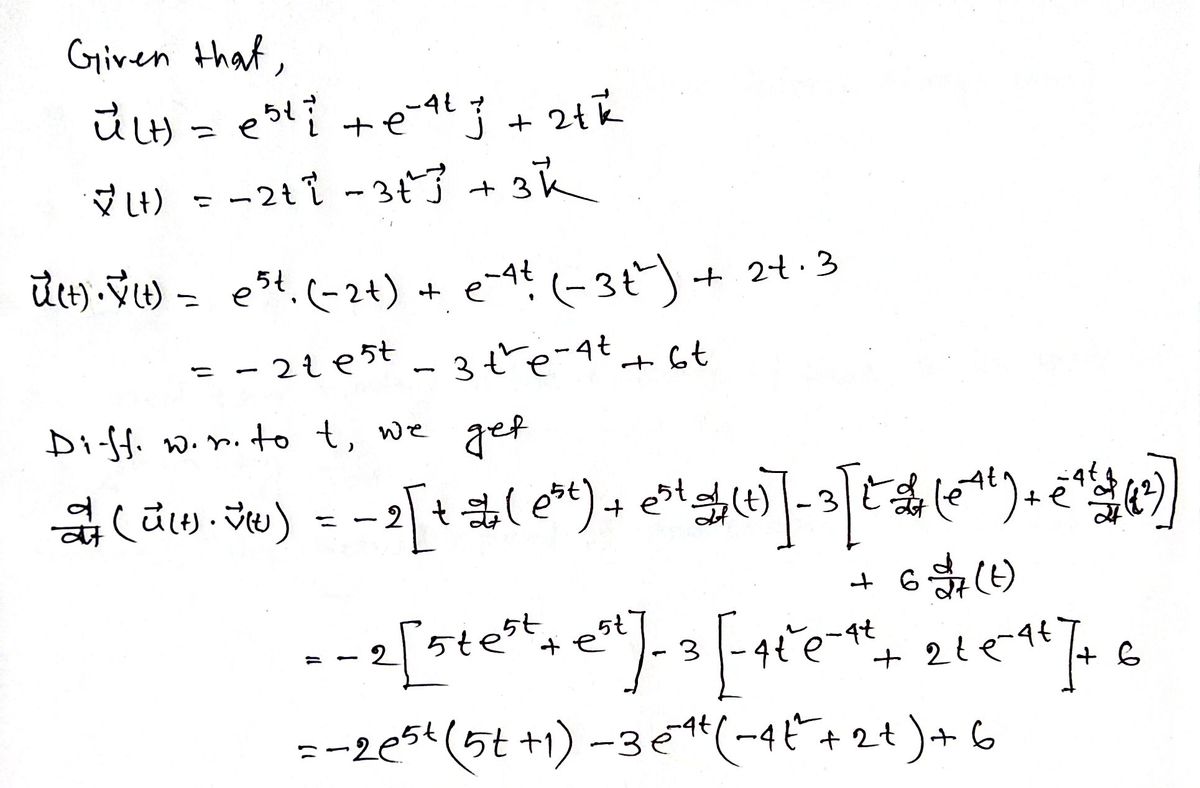 Given that,
u⃗(t) = e^{5t} i⃗ + e^{-4t} j⃗ + 2t k⃗
v⃗(t) = -2t i⃗ - 3t² j⃗ + 3 k⃗
u⃗(t)·v⃗(t) = e^{5t}.(-2t) + e^{-4t}.(-3t²) + 2t·3
= -2t e^{5t} - 3t² e^{-4t} + 6t
Diff. w.r.to t, we get
d/dt (u⃗(t)·v⃗(t)) = -2[t d/dt (e^{5t}) + e^{5t} d/dt (t)] - 3[t² d/dt (e^{-4t}) + e^{-4t} d/dt (t²)]
+ 6 d/dt (t)
= -2[5te^{5t} + e^{5t}] - 3[-4t² e^{-4t} + 2t e^{-4t}] + 6
= -2e^{5t}(5t+1) - 3e^{-4t}(-4t² + 2t) + 6